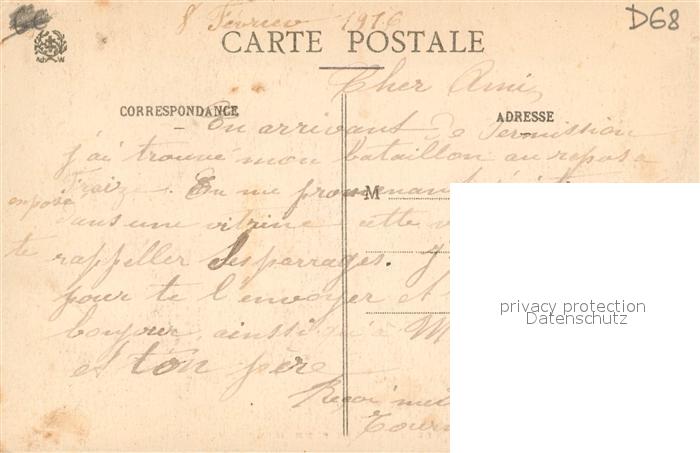 8 Février 1916
D68
CARTE POSTALE
Cher Ami
CORRESPONDANCE
ADRESSE
En arrivant de Permission
j'ai trouvé mon bataillon au repos a
Fraize. En me promenant
exposé
M
dans une vitrine cette
te
rappeller les parrages. J'
pour te l'envoyer et
bonjour, ainsi qu'a M
et ton pere
privacy protection
Datenschutz